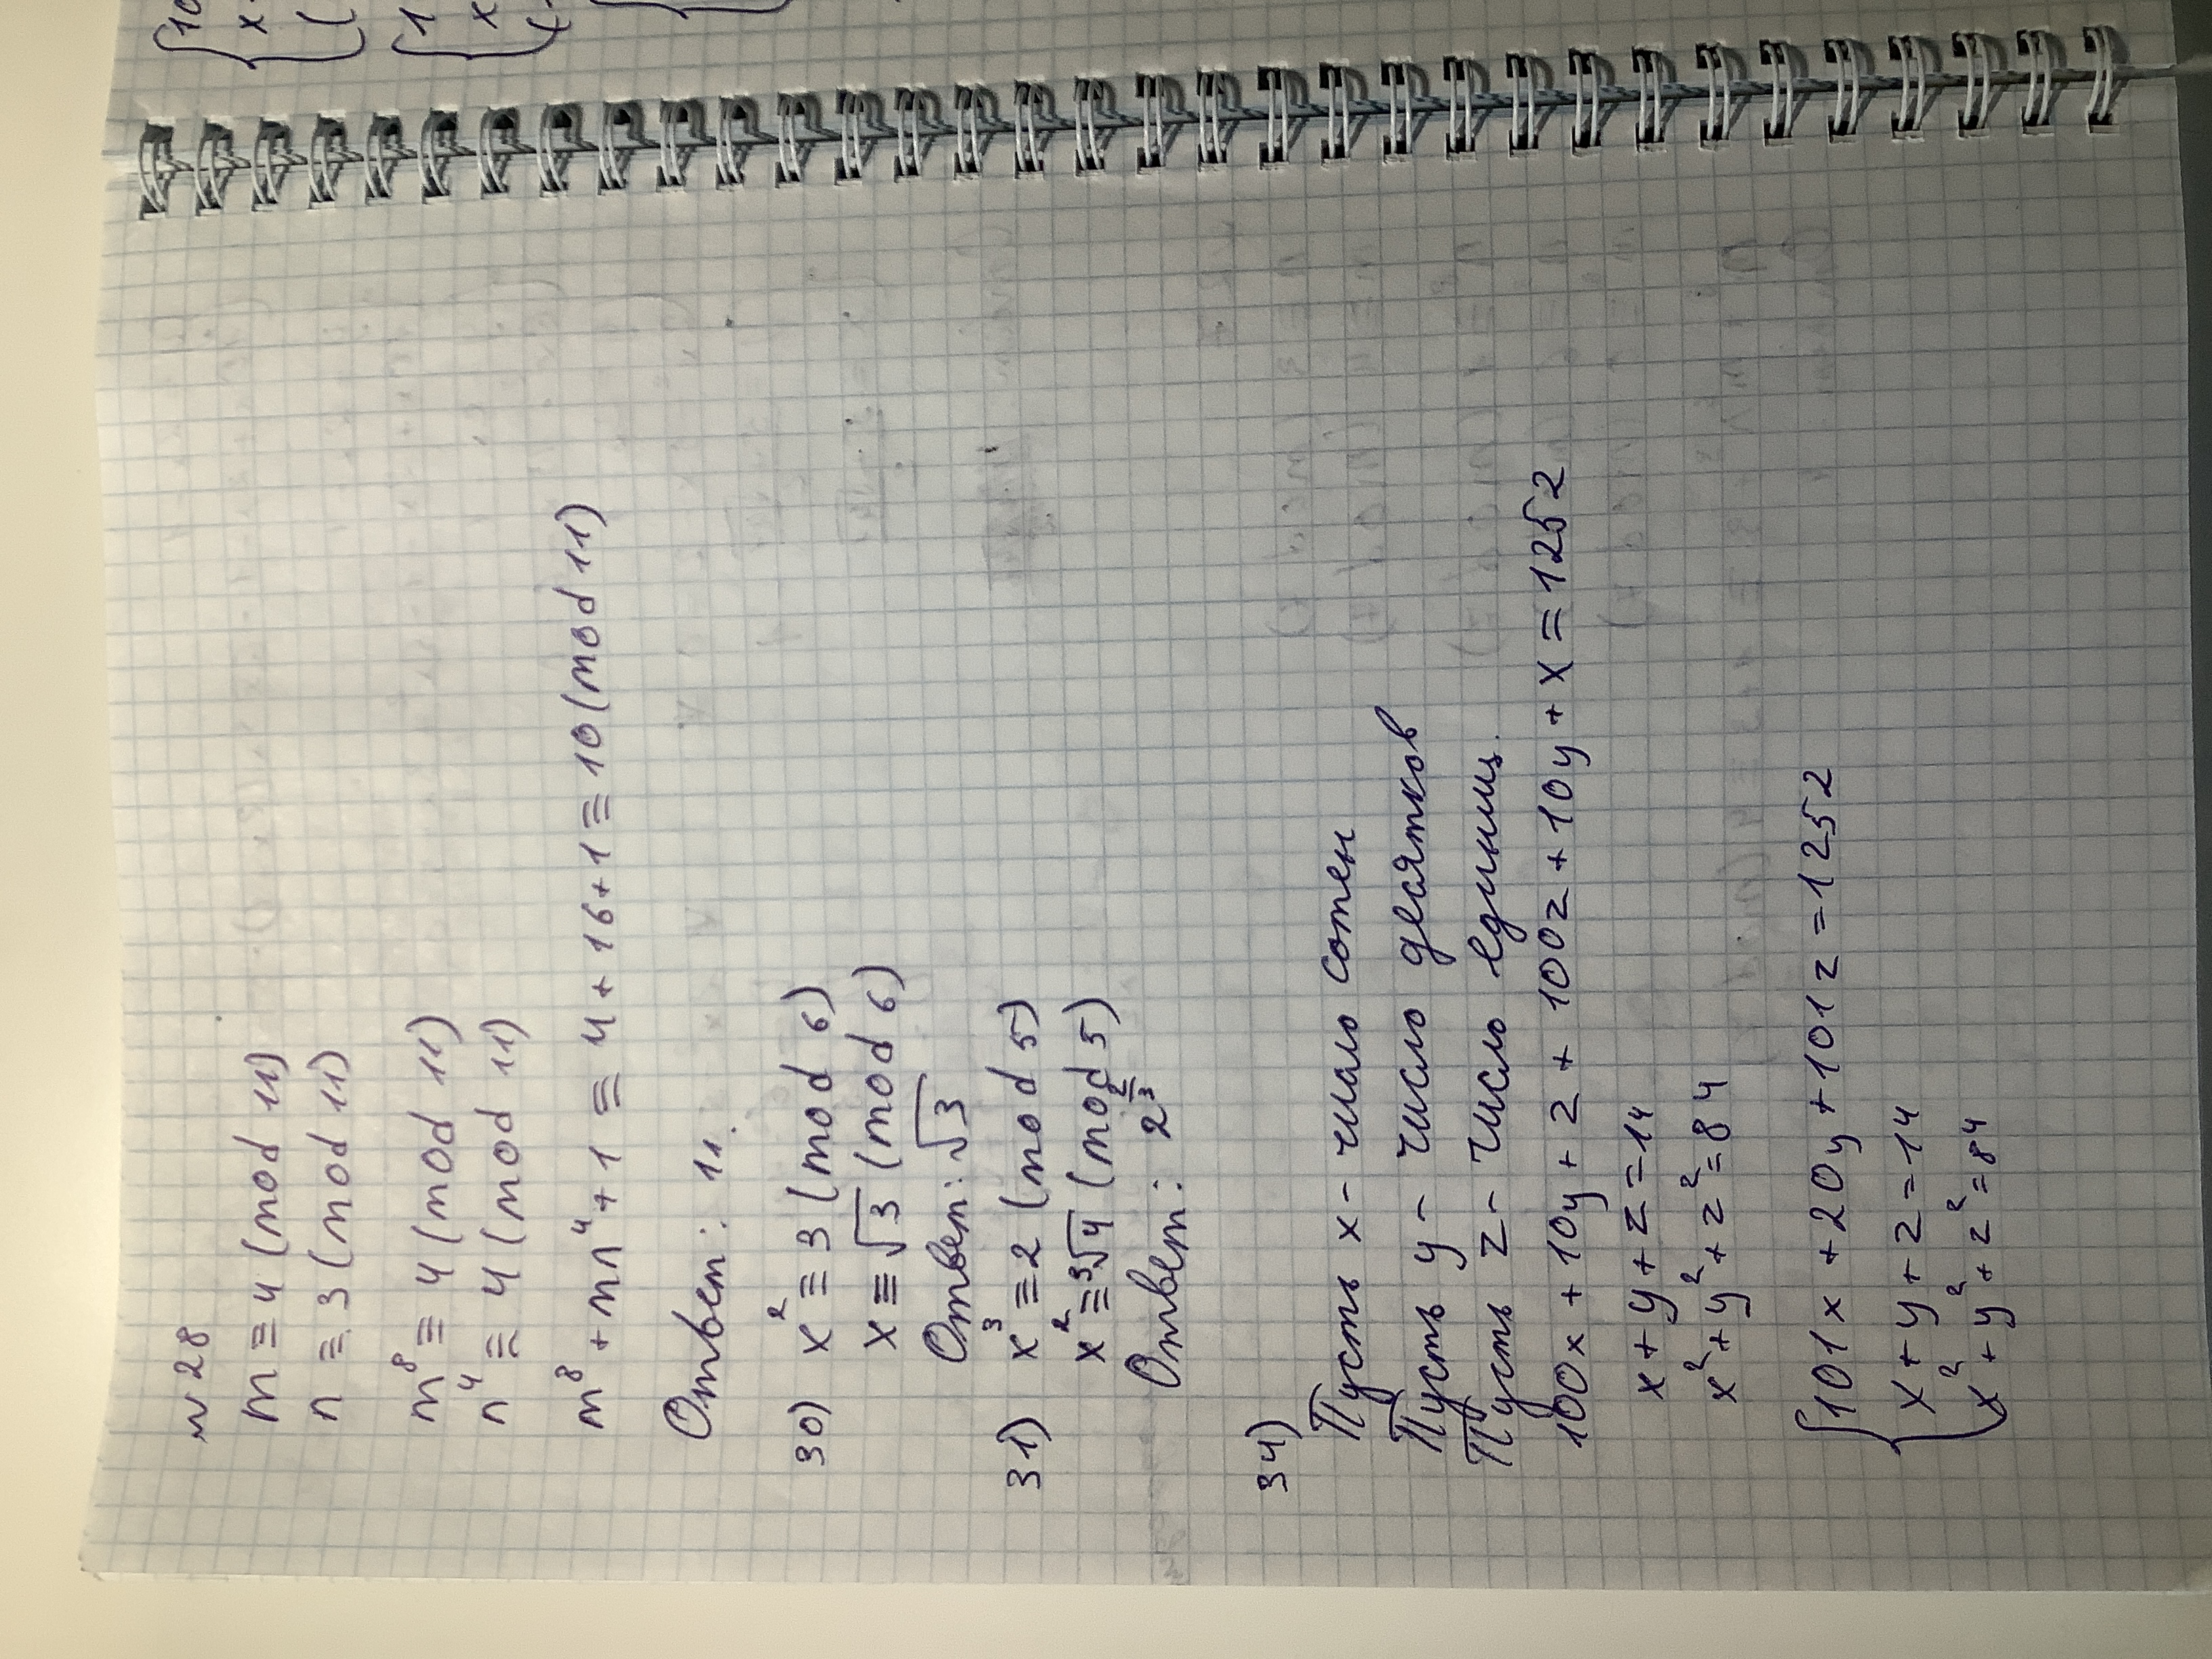 № 28
m ≡ 4 (mod 11)
n ≡ 3 (mod 11)
m⁸ ≡ 4 (mod 11)
n⁴ ≡ 4 (mod 11)
m⁸ + mn⁴ + 1 ≡ 4 + 16 + 1 ≡ 10 (mod 11)
Ответ: 11.
30) x² ≡ 3 (mod 6)
x ≡ √3 (mod 6)
Ответ: √3
31) x³ ≡ 2 (mod 5)
x² ≡ ³√4 (mod 5)
Ответ: 2^(2/3)
34)
Пусть x - число сотен
Пусть y - число десятков
Пусть z - число единиц.
100x + 10y + z + 100z + 10y + x = 1252
x + y + z = 14
x² + y² + z² = 84
{ 101x + 20y + 101z = 1252
x + y + z = 14
x² + y² + z² = 84